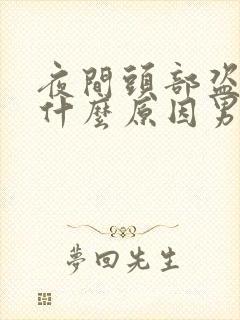 夜間頭部盜
什麼原因男
夢回先生